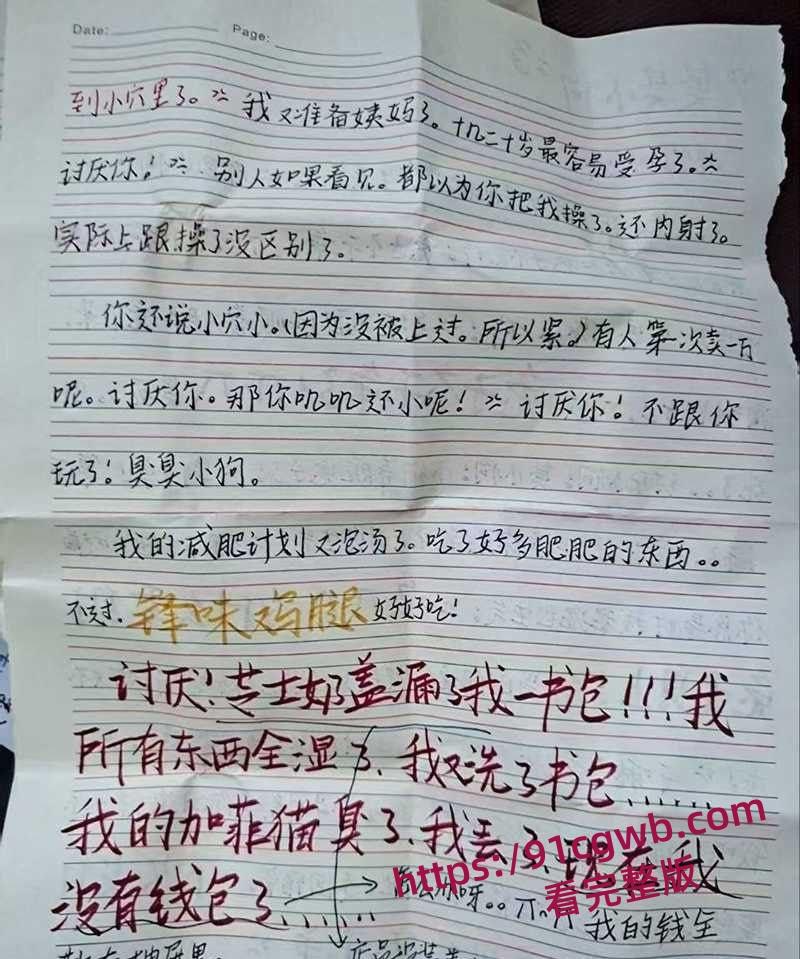 Date: Page:
到小穴里了。我又准备姨妈了。十九二十岁最容易受孕了。
讨厌你！别人如果看见。都以为你把我操了。还内射了。
实际上跟操了没区别了。
你还说小穴小。(因为没被上过。所以紧。)有人第一次卖一万
呢。讨厌你。那你叽叽还小呢！讨厌你！不跟你
玩了！臭臭小狗。
我的减肥计划又泡汤了。吃了好多肥肥的东西。。
不过.锋味鸡腿好好吃！
讨厌！芝士奶盖漏了我一书包!!!我
所有东西全湿了、我又洗了书包......
我的加菲猫臭了、我丢了、现在我
没有钱包了......
呀。。我的钱全
https://91cgwb.com
看完整版